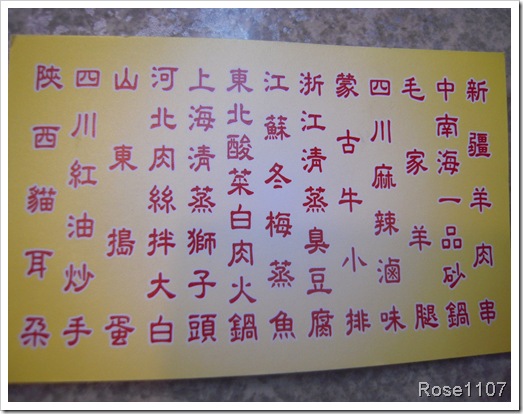 新疆羊肉串
中南海一品砂鍋
毛家羊腿
四川麻辣滷味
蒙古牛小排
浙江清蒸臭豆腐
江蘇冬梅蒸魚
東北酸菜白肉火鍋
上海清蒸獅子頭
河北肉絲拌大白
山東搗蛋
四川紅油炒手
陝西貓耳朶
Rose1107